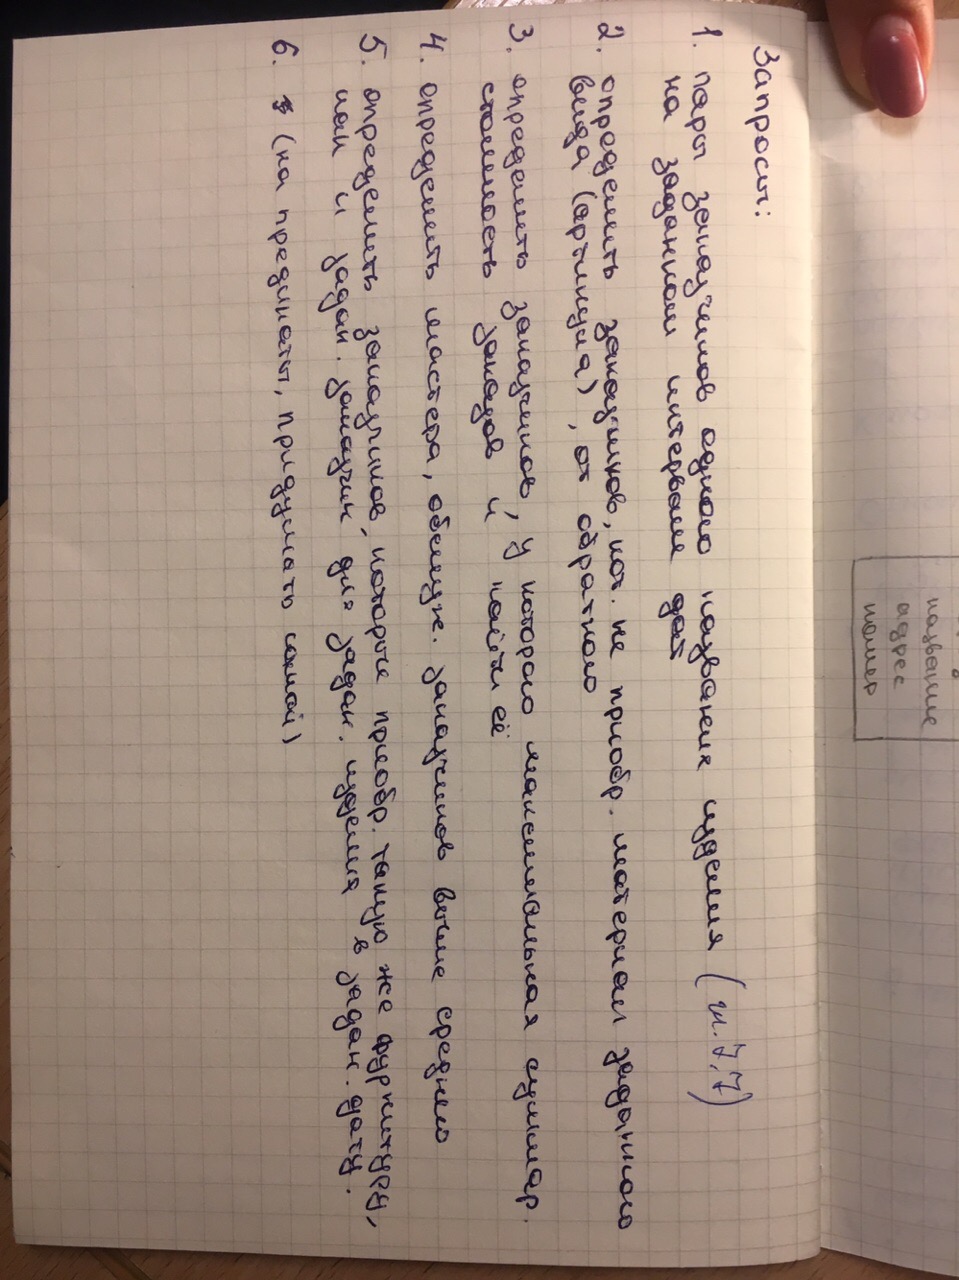 название
адрес
номер
Запросы:
1. пары заказчиков одного название изделия (гл. 7.7)
на заданном интервале дат
2. определить заказчиков, кот. не приобр. материал заданного
вида (артикула), от обратного
3. определить заказчиков, у которого максимальная суммар.
стоимость заказов и найти её
4. определить мастера, обслуж. заказчиков выше среднего
5. определить заказчиков, которые приобр. такую же фурнитуру,
как и задан. заказчик для задан. изделия в задан. дату.
6. (на предикаты, придумать самой)